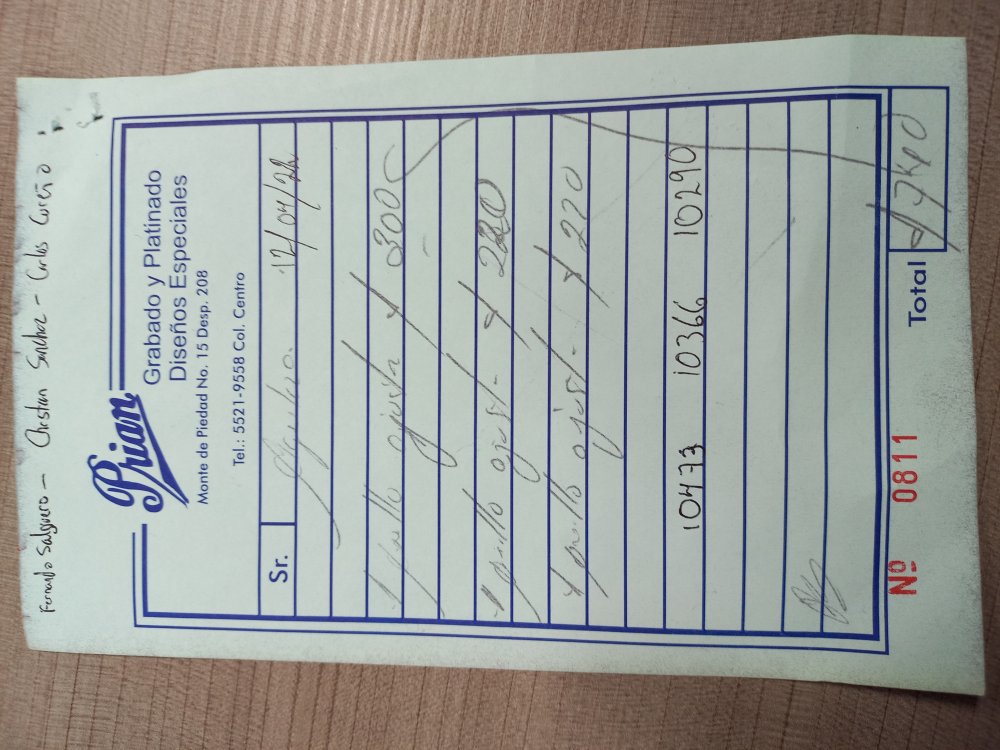 Fernando Salguero — Christian Sanchez - Carlos Coreño
Prian
Grabado y Platinado
Diseños Especiales
Monte de Piedad No. 15 Desp. 208
Tel.: 5521-9558 Col. Centro
Sr. 12/04/24
1 anillo ajusta $ 300
1 anillo ajust- $ 220
1 anillo ajust- $ 220
10473 10366 10290
Nº 0811 Total $ 740